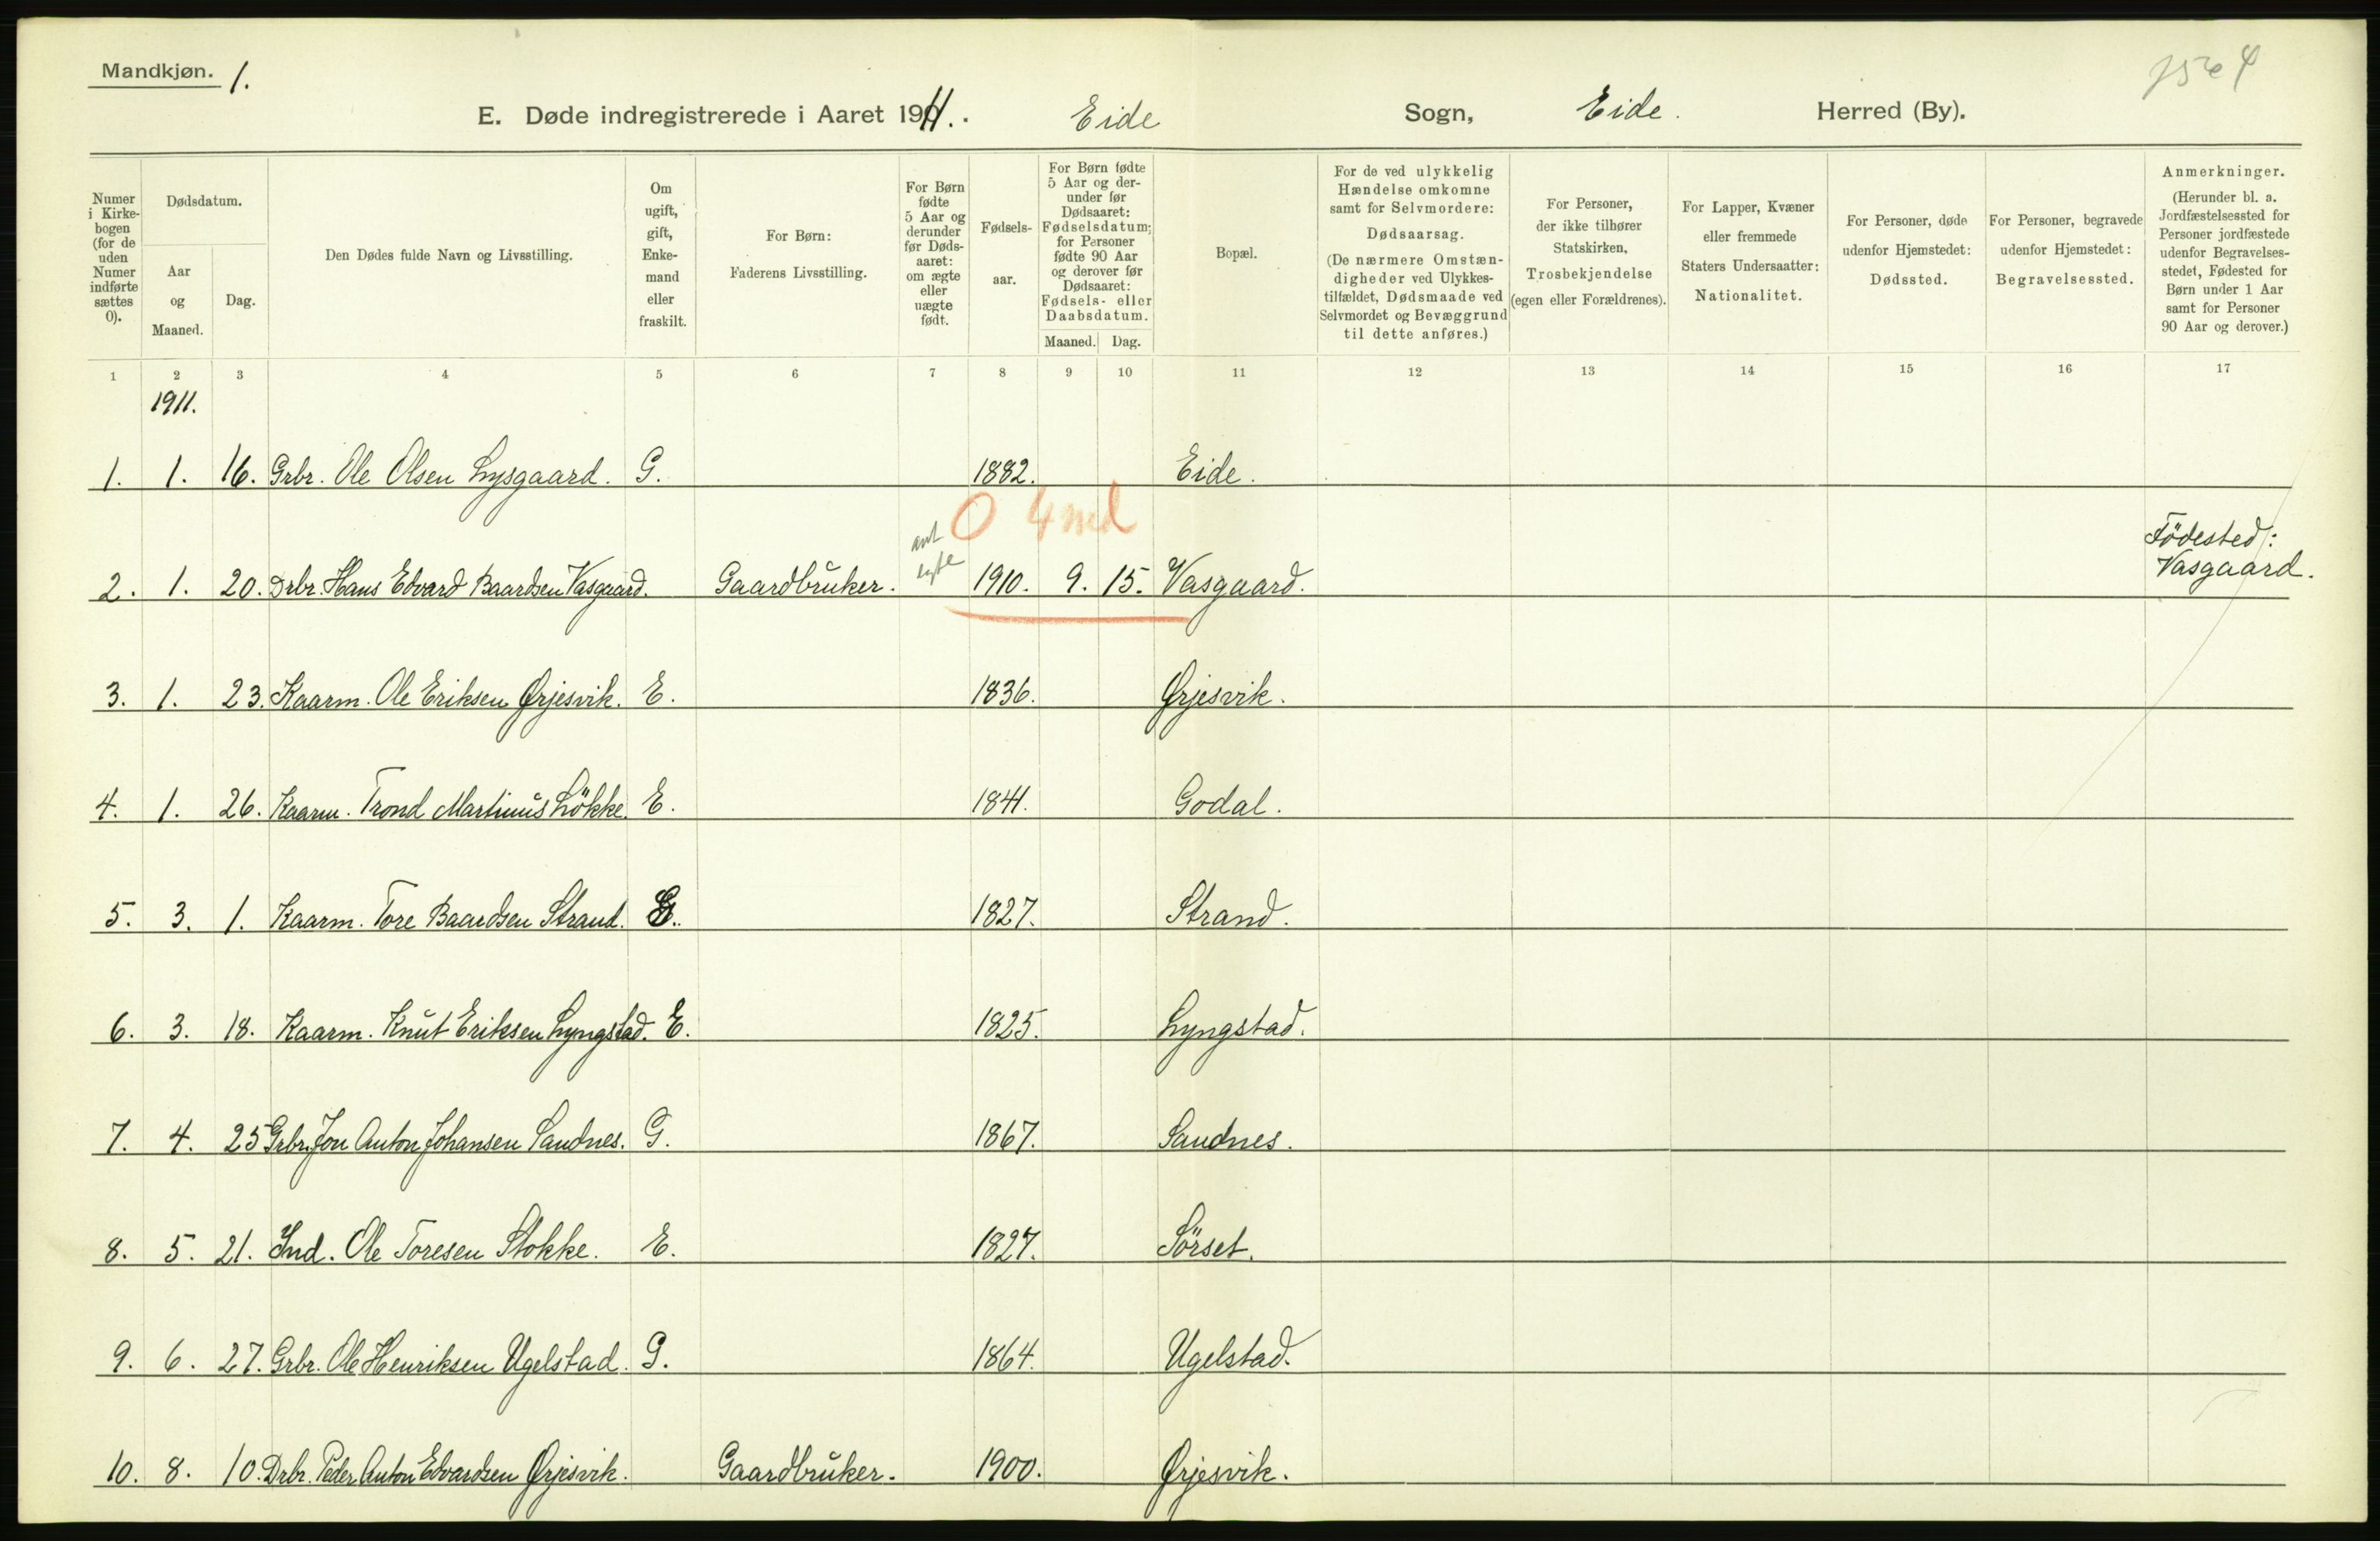 Mandkjøn. 1.
E. Døde indregistrerede i Aaret 1911. Eide Sogn, Eide. Herred (By).
Numer i Kirkebogen (for de uden Numer indførte sættes 0).
Dødsdatum.
Aar og Maaned.
Dag.
Den Dødes fulde Navn og Livsstilling.
Om ugift, gift, Enkemand eller fraskilt.
For Børn: Faderens Livsstilling.
For Børn fødte 5 Aar og derunder før Dødsaaret: om ægte eller uægte født.
Fødselsaar.
For Børn fødte 5 Aar og derunder før Dødsaaret: Fødselsdatum; for Personer fødte 90 Aar og derover før Dødsaaret: Fødsels- eller Daabsdatum.
Maaned. Dag.
Bopæl.
For de ved ulykkelig Hændelse omkomne samt for Selvmordere: Dødsaarsag. (De nærmere Omstændigheder ved Ulykkestilfældet, Dødsmaade ved Selvmordet og Bevæggrund til dette anføres.)
For Personer, der ikke tilhører Statskirken, Trosbekjendelse (egen eller Forældrenes).
For Lapper, Kvæner eller fremmede Staters Undersaatter: Nationalitet.
For Personer, døde udenfor Hjemstedet: Dødssted.
For Personer, begravede udenfor Hjemstedet: Begravelsessted.
Anmerkninger. (Herunder bl. a. Jordfæstelsessted for Personer jordfæstede udenfor Begravelsesstedet, Fødested for Børn under 1 Aar samt for Personer 90 Aar og derover.)
1 2 3 4 5 6 7 8 9 10 11 12 13 14 15 16 17
1911.
1. 1. 16. Grbr. Ole Olsen Lysgaard. G. 1882. Eide.
0 4 md
Födested:
2. 1. 20. Drbr. Hans Edvard Baardsen Vasgaard. Gaardbruker. ant egte 1910. 9. 15. Vasgaard. Vasgaard.
3. 1. 23. Kaarm. Ole Eriksen Ørjesvik. E. 1836. Ørjesvik.
4. 1. 26. Kaarm. Trond Martinus Lökke. E. 1841. Godal.
5. 3. 1. Kaarm. Tore Baardsen Strand. 1827. Strand.
6. 3. 18. Kaarm. Knut Eriksen Lyngstad. E. 1825. Lyngstad.
7. 4. 25 Grbr. Jon Anton Johansen Sandnes. G. 1867. Sandnes.
8. 5. 21. Ind. Ole Toresen Stokke. E. 1827. Sörset.
9. 6. 27. Grbr. Ole Henriksen Ugelstad. G. 1864. Ugelstad.
10. 8. 10. Drbr. Peder Anton Edvardsen Ørjesvik. Gaardbruker. 1900. Ørjesvik.